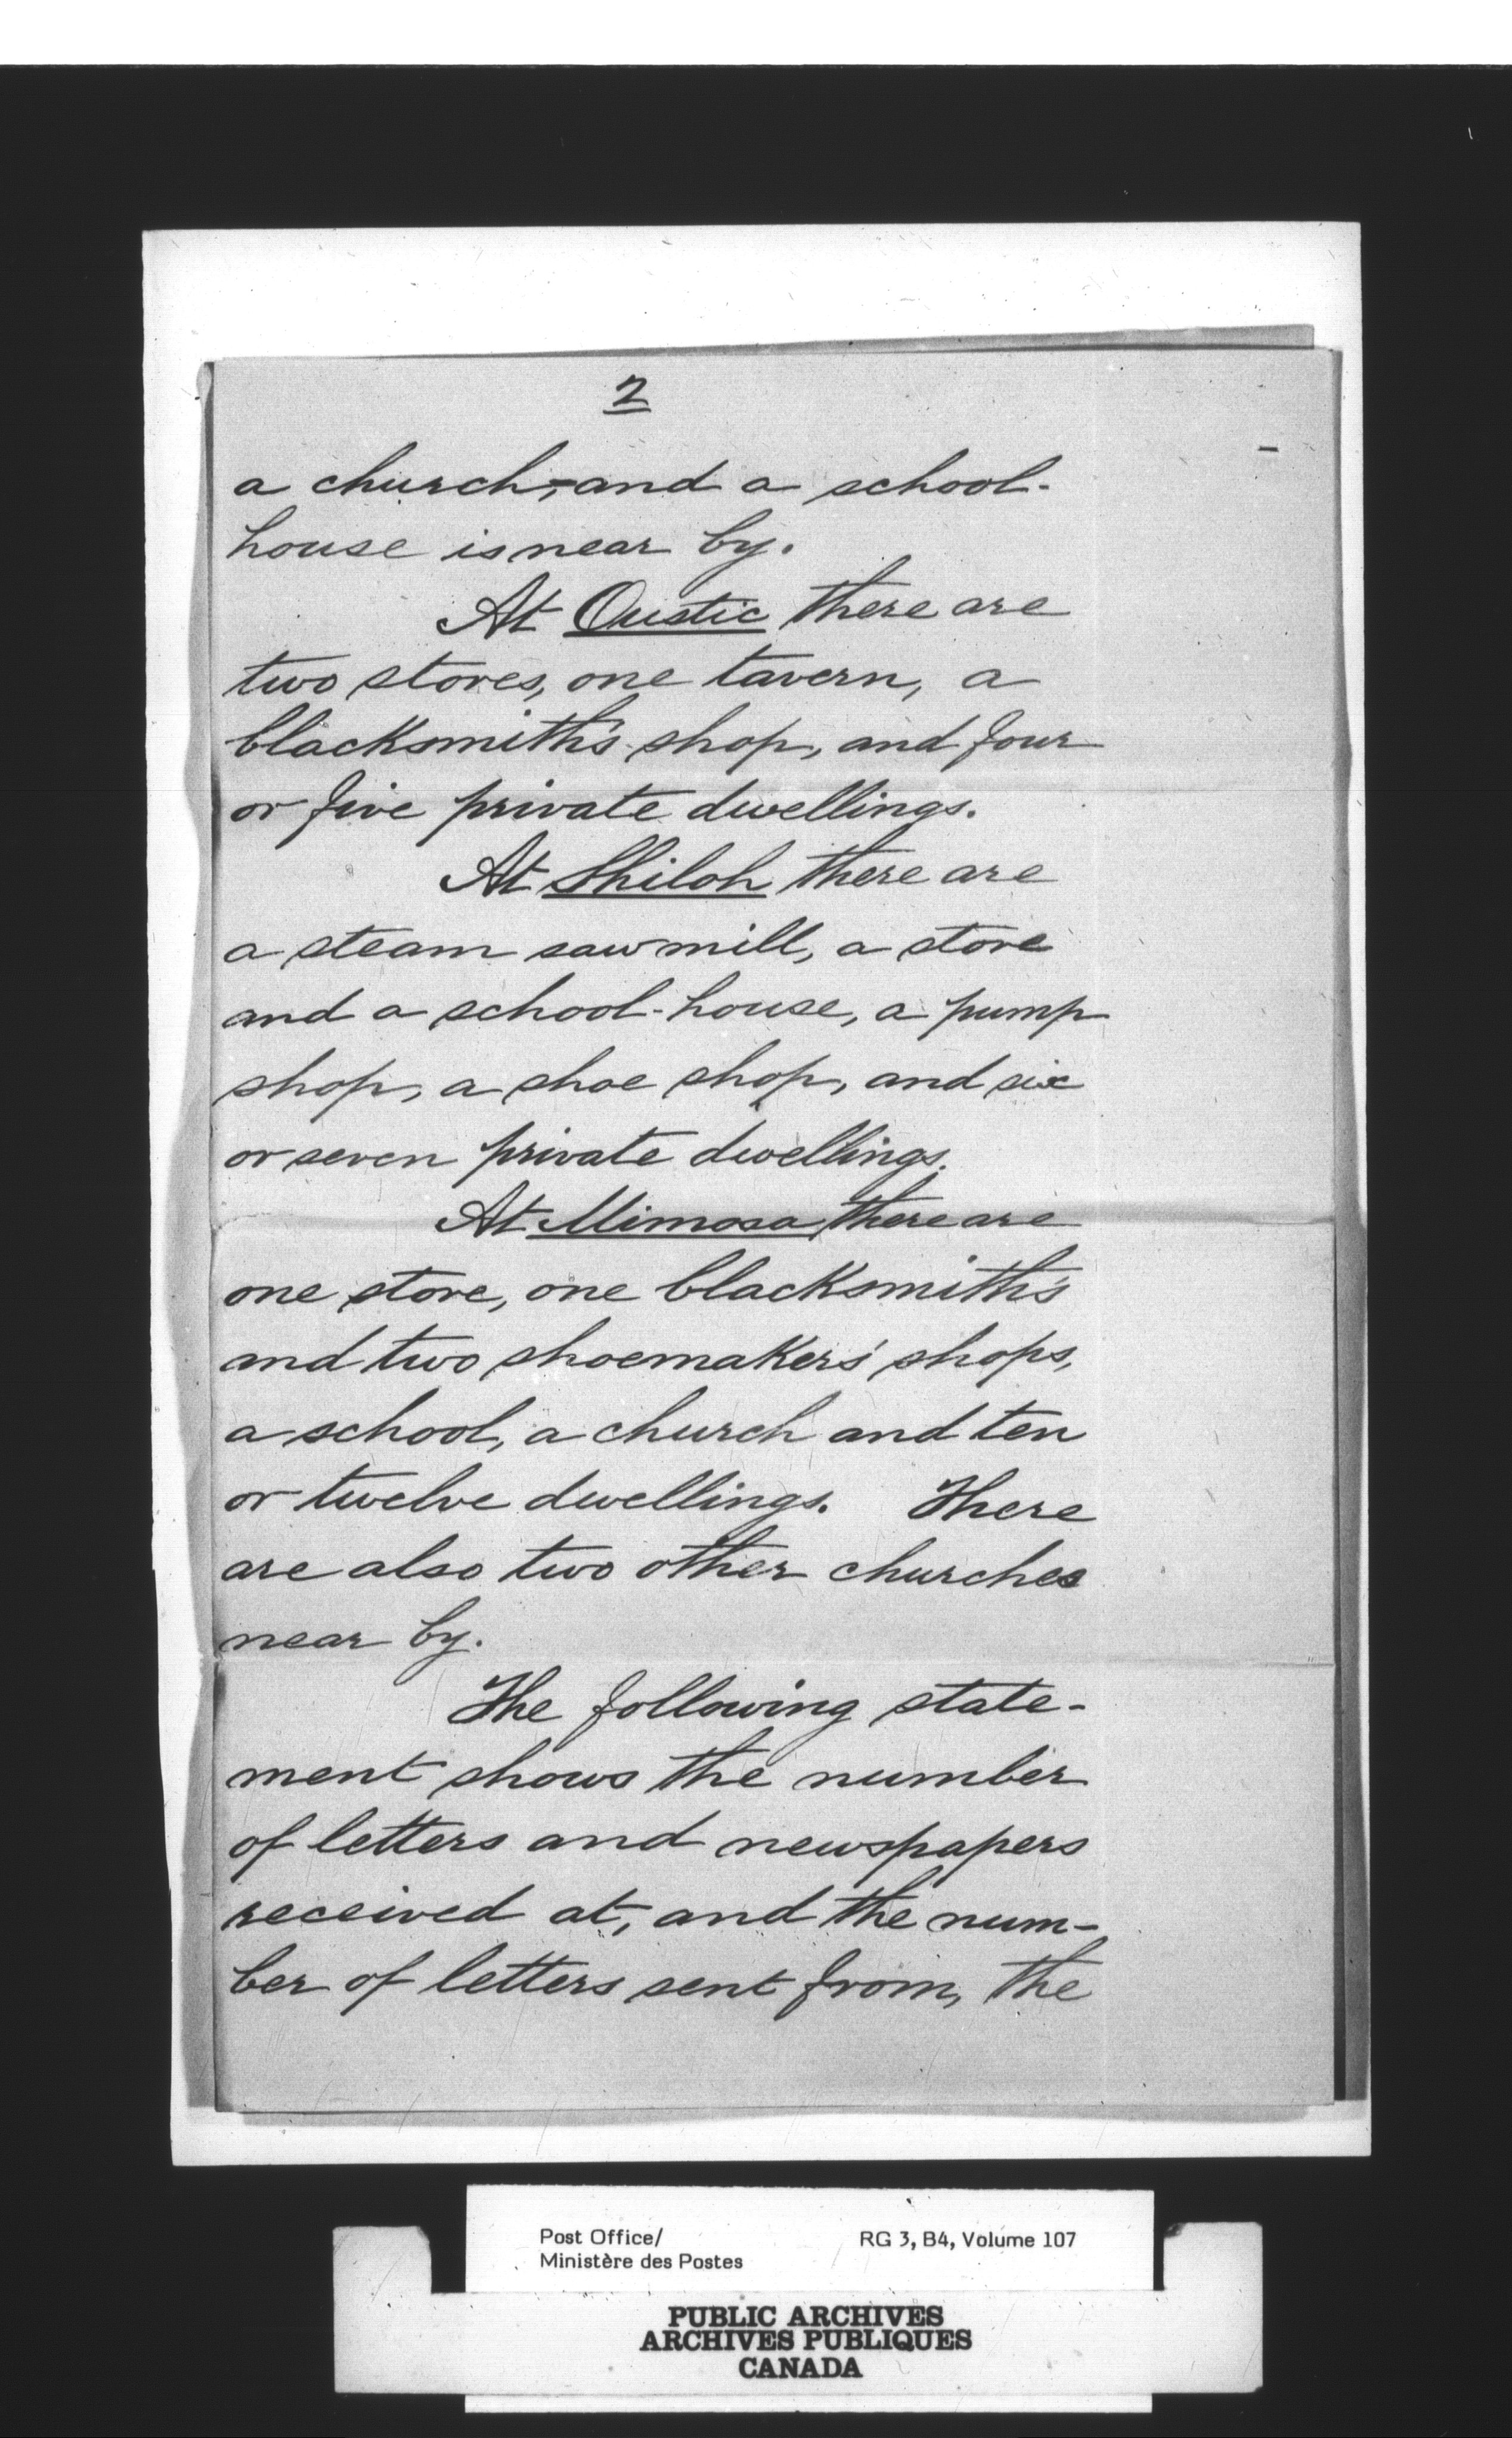 2
a church,-and a school-
house is near by.
At Oustic there are
two stores, one tavern, a
blacksmith's shop, and four
or five private dwellings.
At Shiloh there are
a steam saw mill, a store
and a school-house, a pump
shop, a shoe shop, and six
or seven private dwellings.
At Mimosa there are
one store, one blacksmith's
and two shoemakers' shops,
a school, a church and ten
or twelve dwellings. There
are also two other churches
near by.
The following state-
ment shows the number
of letters and newspapers
received at, and the num-
ber of letters sent from, the
Post Office/ RG 3, B4, Volume 107
Ministère des Postes
PUBLIC ARCHIVES
ARCHIVES PUBLIQUES
CANADA